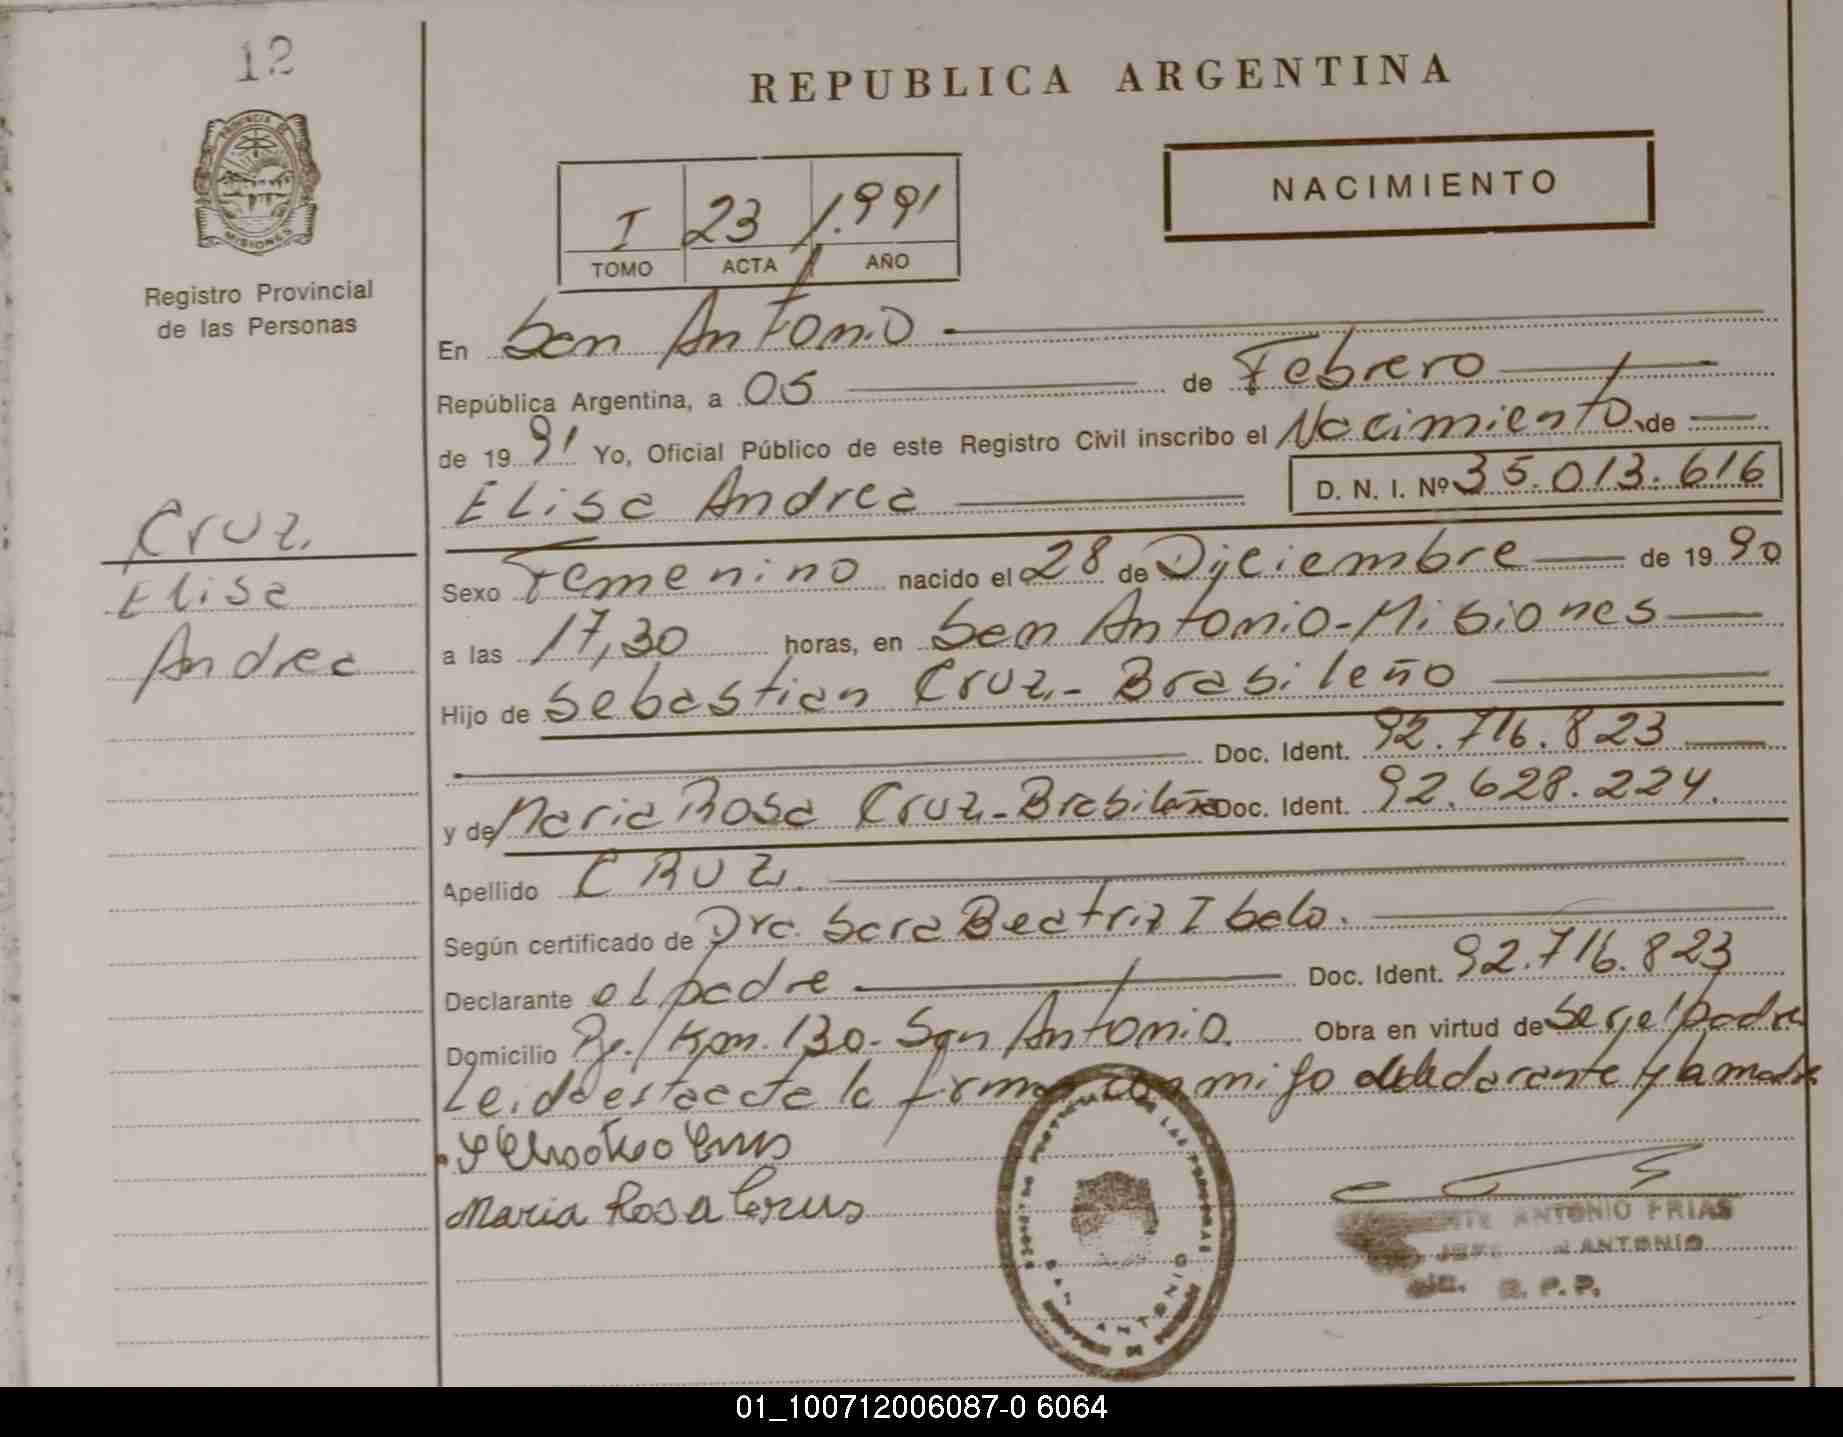 12
REPUBLICA ARGENTINA
NACIMIENTO
PROVINCIA DE
MISIONES
Registro Provincial
de las Personas
I 23 1.991
TOMO ACTA AÑO
En San Antonio
República Argentina, a 05 de Febrero
de 1991 Yo, Oficial Público de este Registro Civil inscribo el Nacimiento de
Elisa Andrea D. N. I. Nº 35.013.616
Cruz
Elisa
Andrea
Sexo Femenino nacido el 28 de Diciembre de 1990
a las 17,30 horas, en San Antonio-Misiones
Hijo de Sebastian Cruz-Brasileño
Doc. Ident. 92.716.823
y de Maria Rosa Cruz-Brasileña Doc. Ident. 92.628.224.
Apellido CRUZ.
Según certificado de Dra. Sara Beatriz Ibalo.
Declarante el padre Doc. Ident. 92.716.823
Domicilio Pje. Km. 130-San Antonio. Obra en virtud de Ser el padre
Leida esta acta la firma conmigo el declarante y la madre
Cruz
Maria Rosa Cruus
SAN ANTONIO
ANTONIO FRIAS
JEFE ANTONIO
R. P. P.
01_100712006087-0 6064